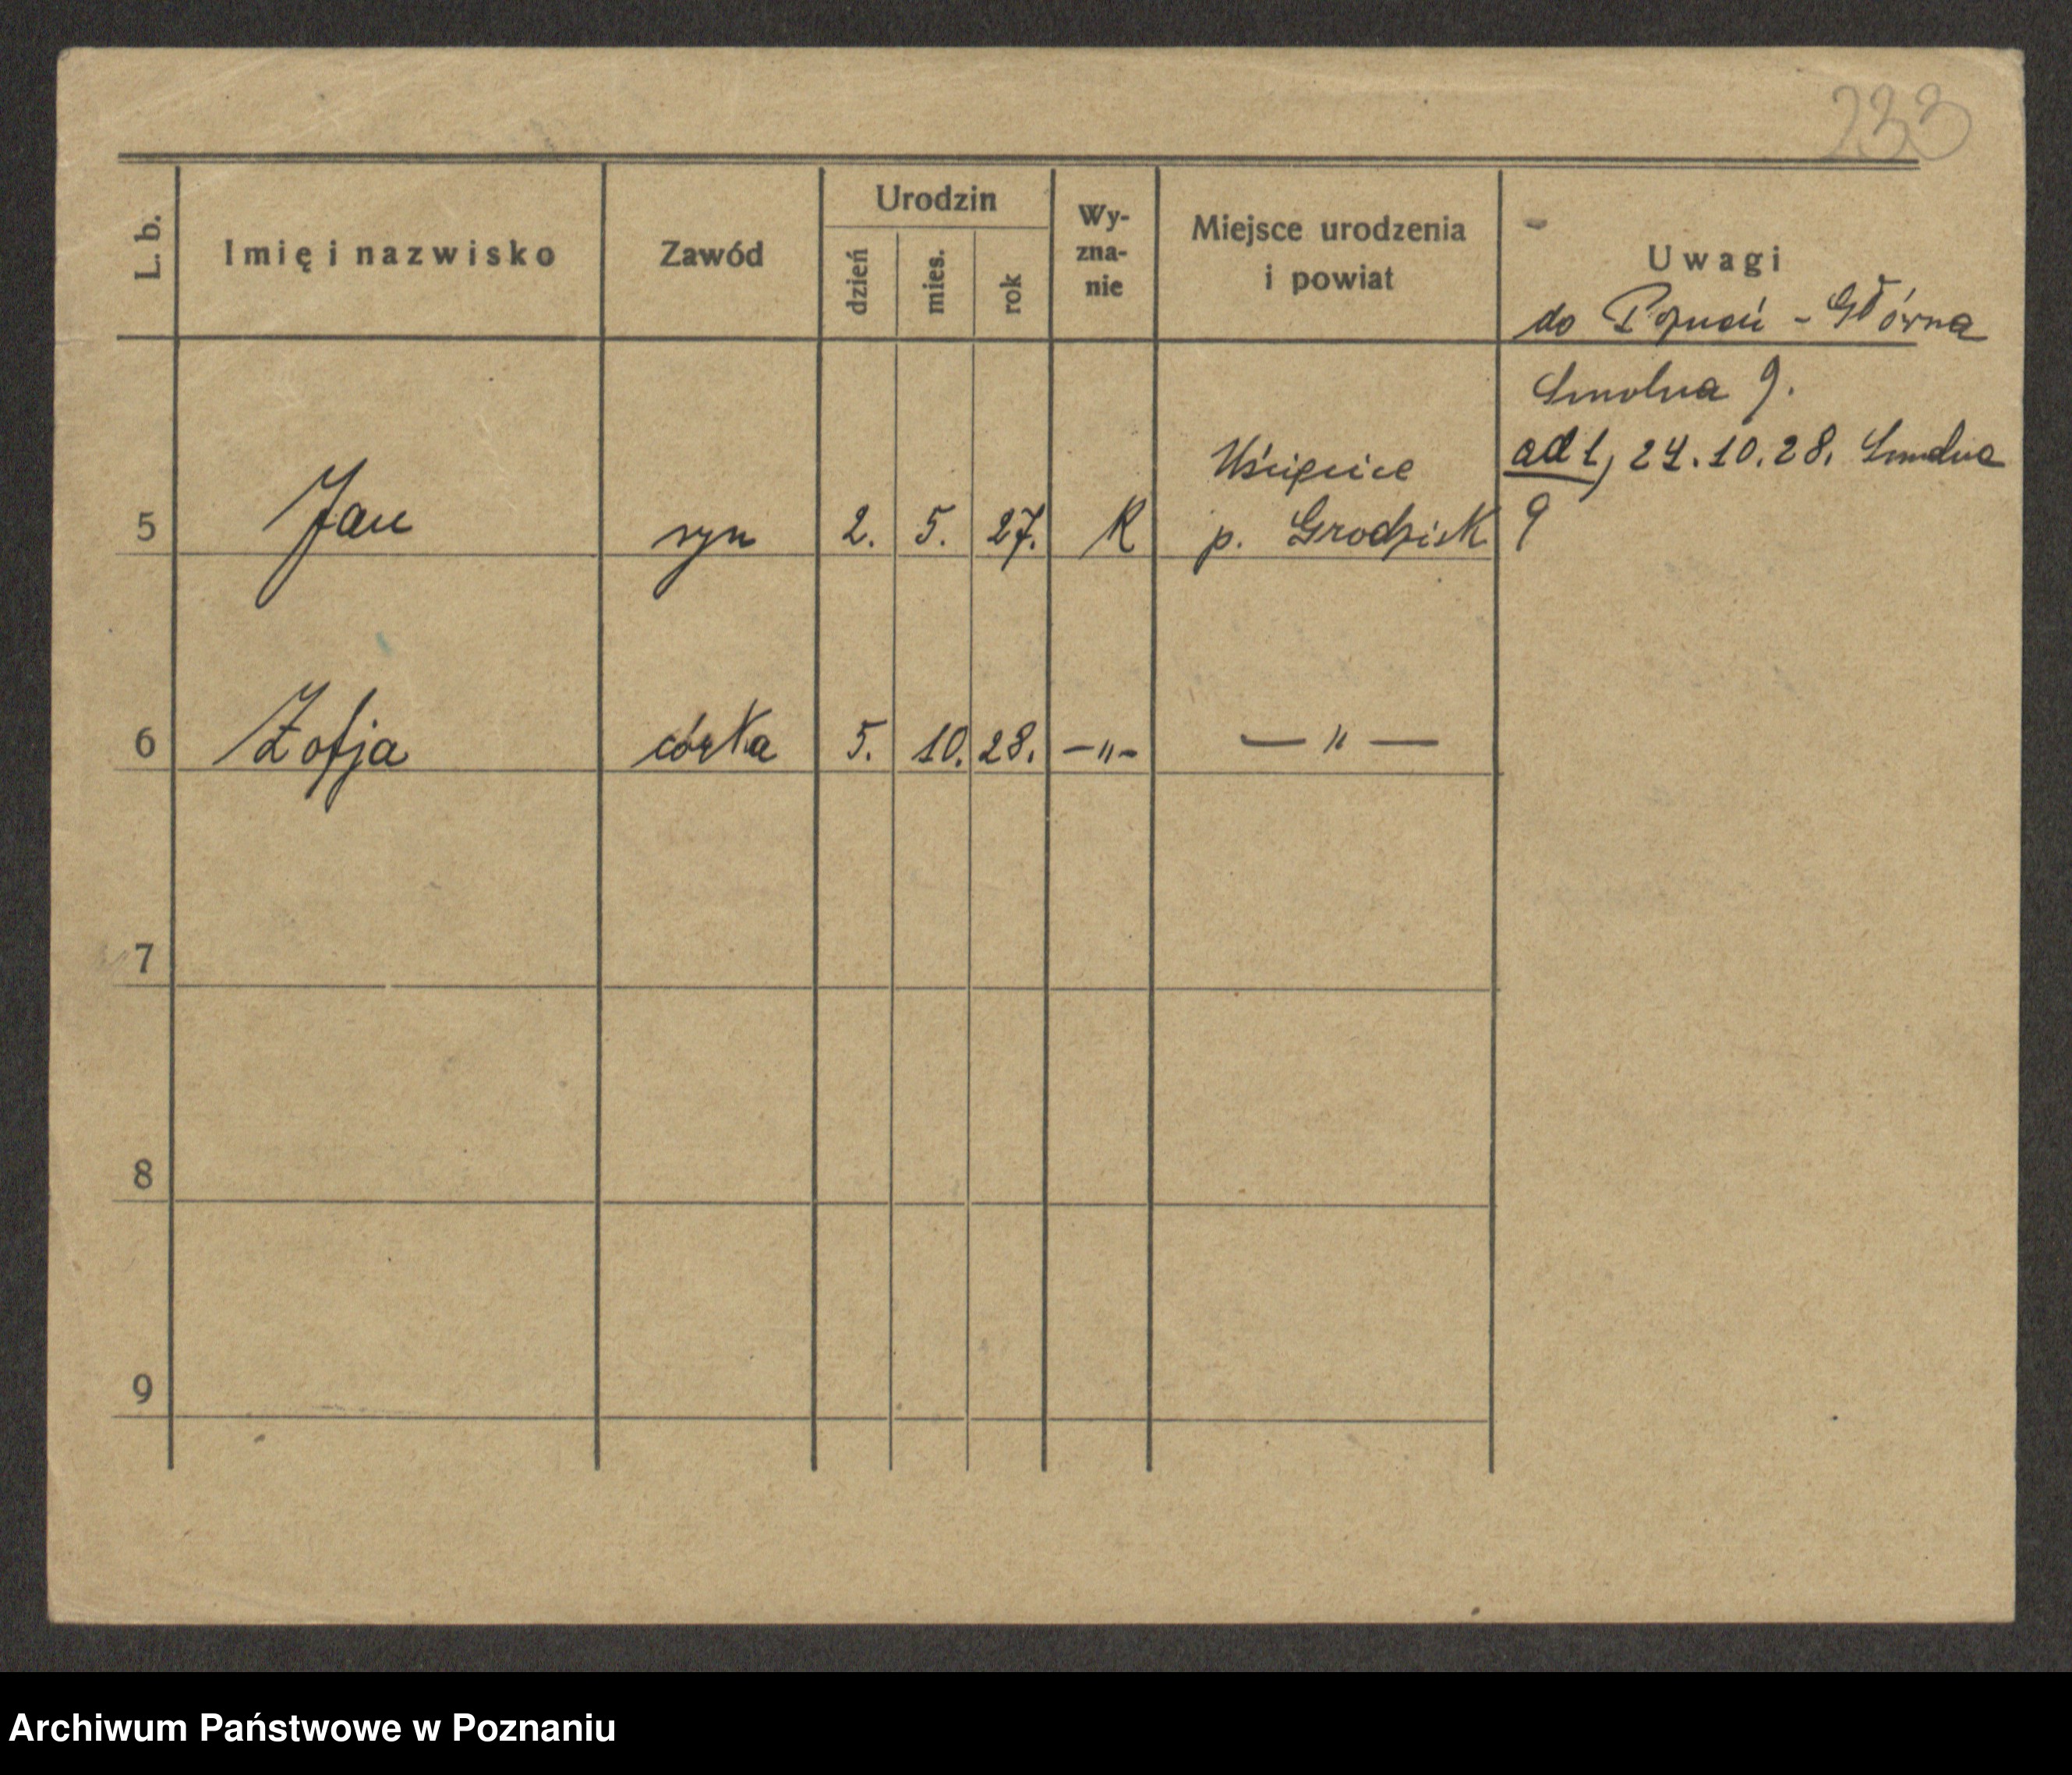 233
L. b. Imię i nazwisko Zawód Urodzin dzień mies. rok Wy-
zna-
nie Miejsce urodzenia
i powiat Uwagi
do Poznań - Główna
Smolna 9.
ad 1, 24.10.28. Smolna
9
5 Jan syn 2. 5. 27. R Uścięcice
p. Grodzisk
6 Zofja córka 5. 10. 28. —"— — " —
7
8
9
Archiwum Państwowe w Poznaniu